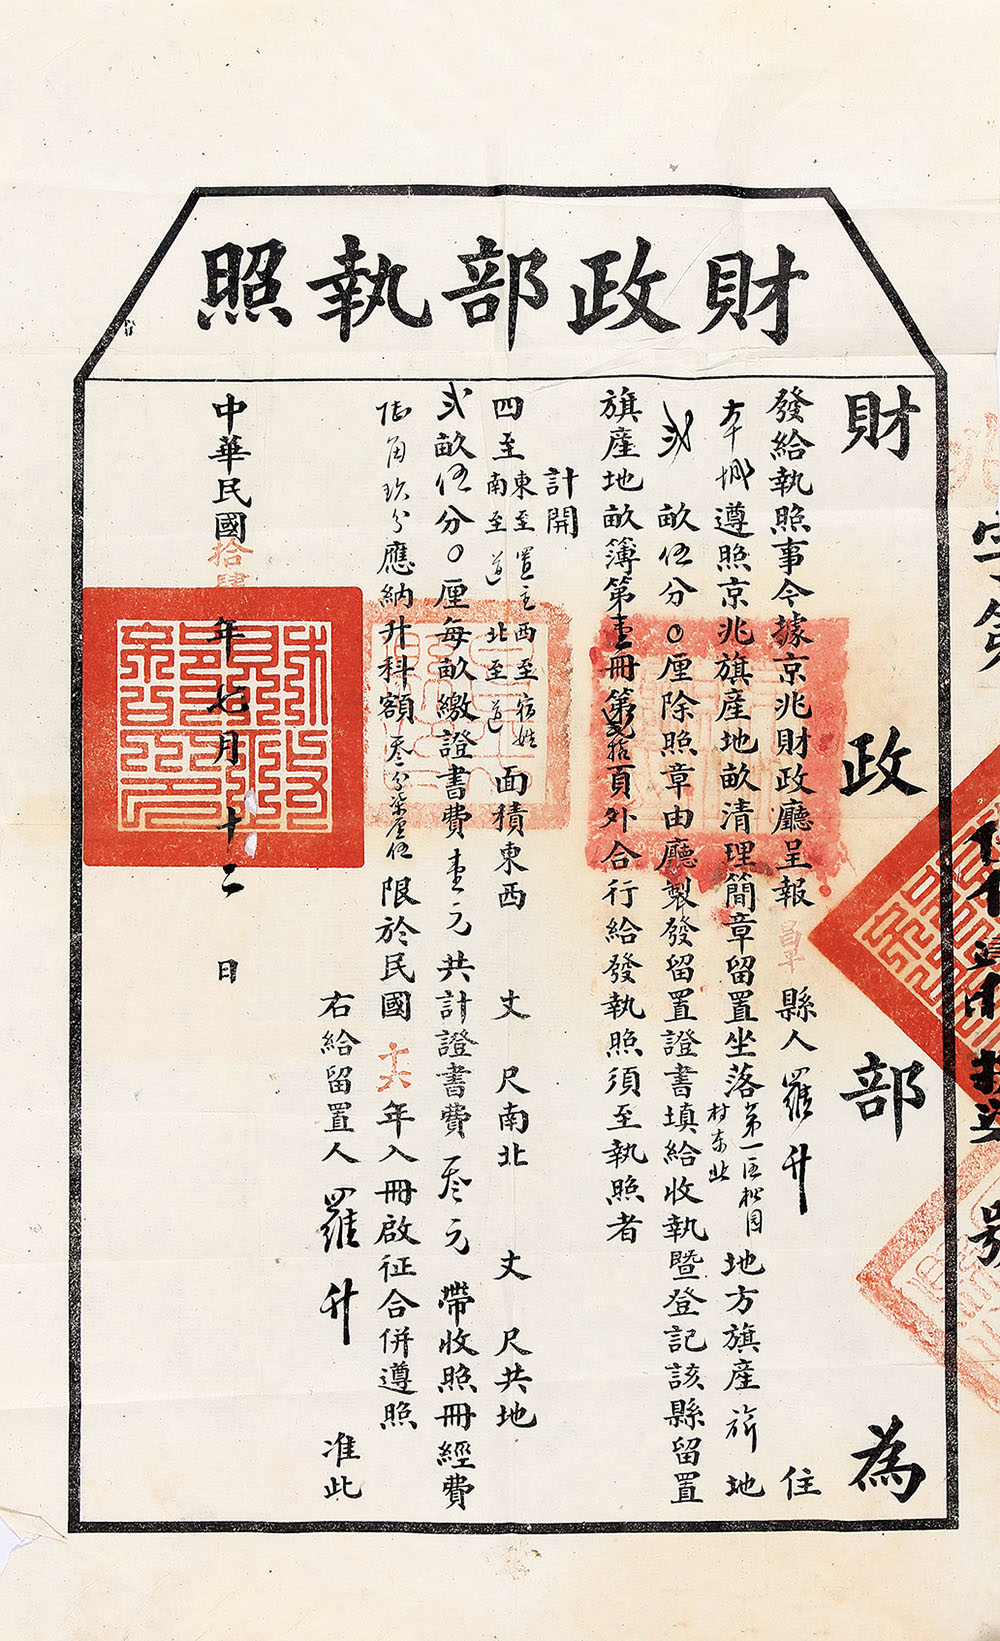 財政部執照
財政部為
發給執照事今據京兆財政廳呈報昌平縣人羅升住
本城遵照京兆旗產地畝清理簡章留置坐落第一區松園村東北地方旗產旂地
貳畝伍分〇厘除照章由廳製發留置證書填給收執暨登記該縣留置
旗產地畝簿第壹冊第頁外合行給發執照須至執照者
計開
四至東至置主西至宿姓南至道北至道面積東西丈尺南北丈尺共地
貳畝伍分〇厘每畝繳證書費壹元共計證書費叁元帶收照冊經費
陸角玖分應納升科額叁分柒厘伍限於民國十六年入冊啟征合併遵照
右給留置人羅升准此
中華民國拾肆年七月十二日
字第
號